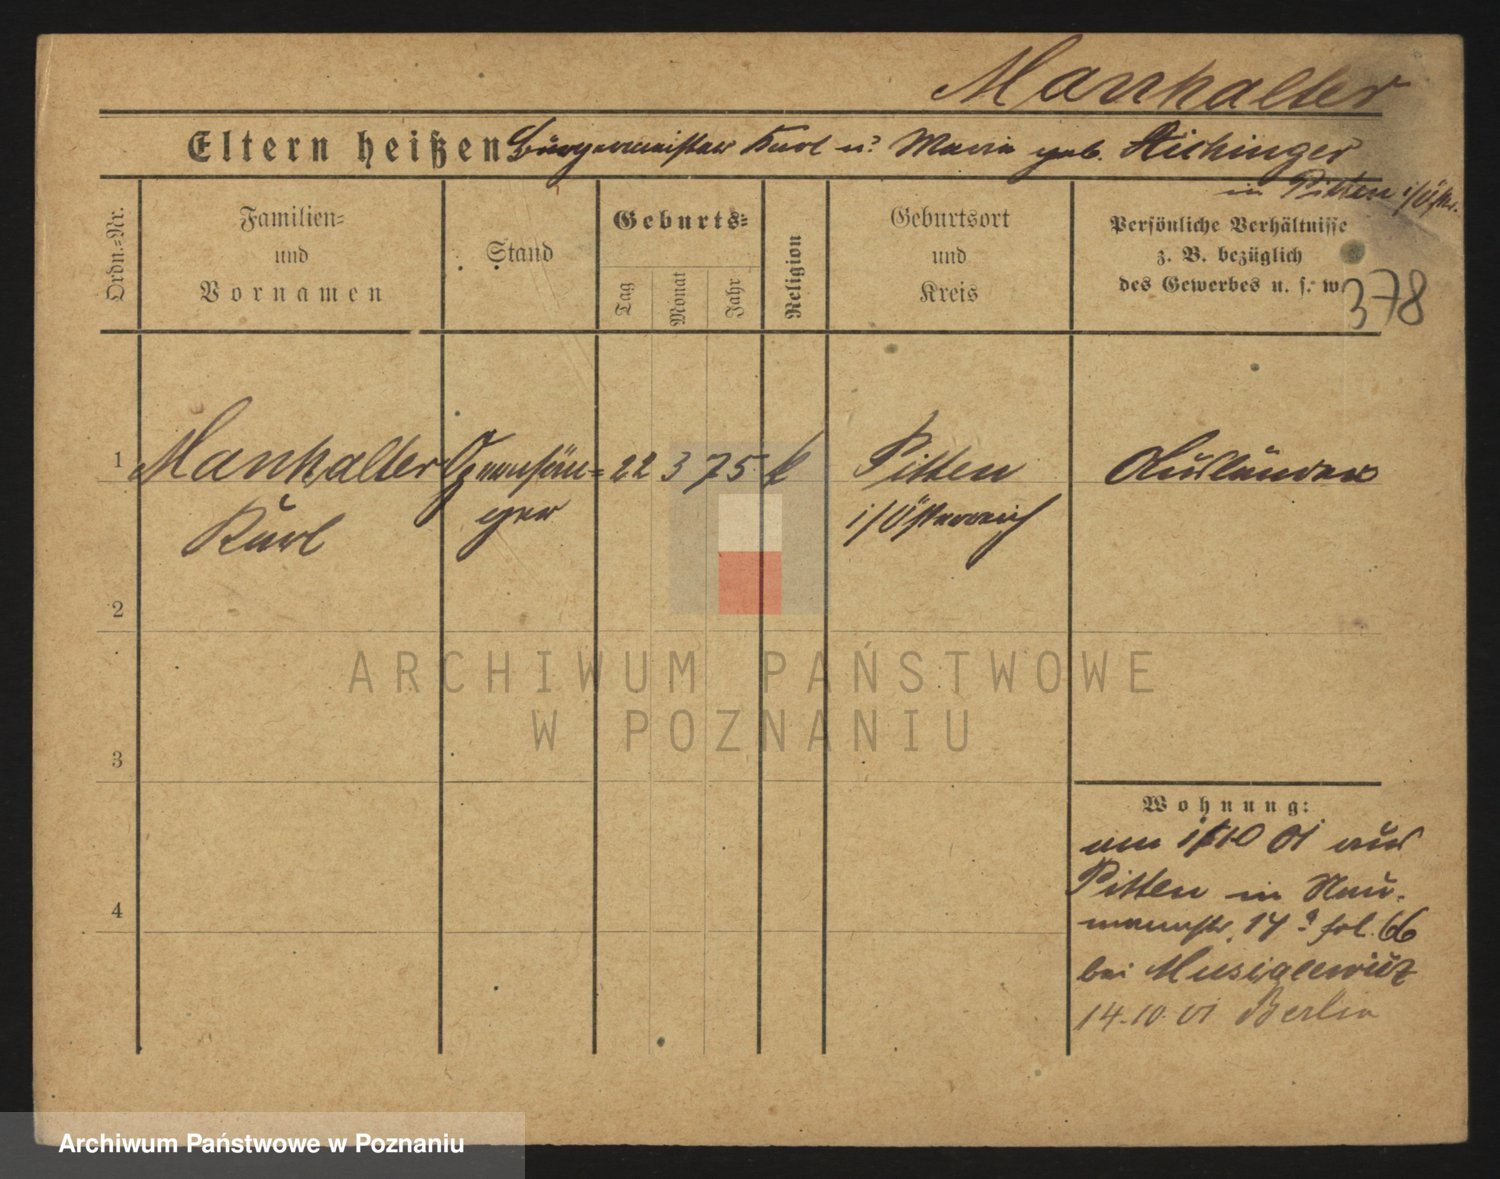 Manhalter
Eltern heißen Bürgermeister Karl u. Maria geb. Aichinger
in Pitten i/Östr.
Ordn.=Nr.
Familien=
und
Vornamen
Stand
Geburts=
Tag
Monat
Jahr
Religion
Geburtsort
und
Kreis
Persönliche Verhältnisse
z. B. bezüglich
des Gewerbes u. s. w.
378
1
Manhalter
Karl
Opernsän=
ger
22
3
75
k
Pitten
i/Österreich
Ausländer
2
3
4
Wohnung:
am 1/10 01 aus
Pitten in Nau-
mannstr. 14 fol. 66
bei
14.10.01 Berlin
ARCHIWUM PAŃSTWOWE
W POZNANIU
Archiwum Państwowe w Poznaniu